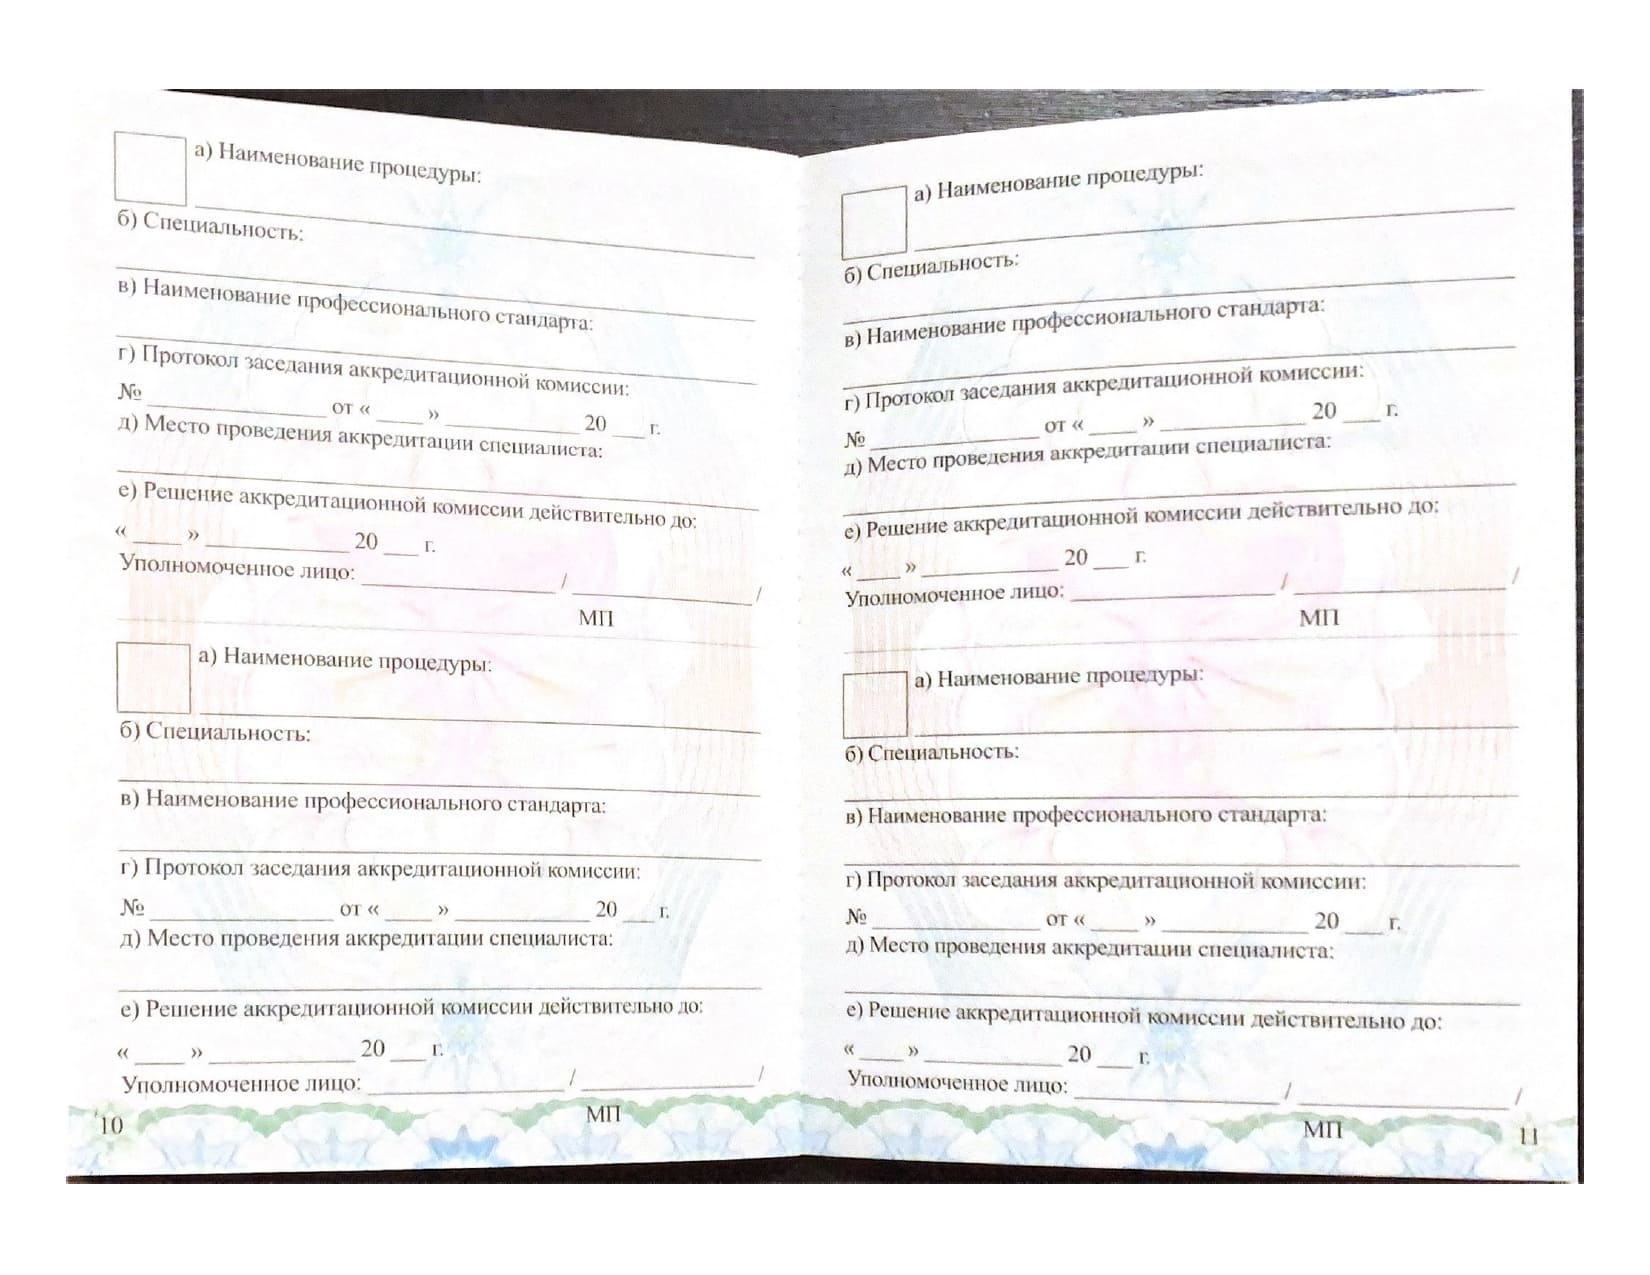 а) Наименование процедуры:
б) Специальность:
в) Наименование профессионального стандарта:
г) Протокол заседания аккредитационной комиссии:
№ ____ от « ____ » ____ 20 ___ г.
д) Место проведения аккредитации специалиста:
е) Решение аккредитационной комиссии действительно до:
« ____ » ____ 20 ___ г.
Уполномоченное лицо: ____ / ____ /
МП
а) Наименование процедуры:
б) Специальность:
в) Наименование профессионального стандарта:
г) Протокол заседания аккредитационной комиссии:
№ ____ от « ____ » ____ 20 ___ г.
д) Место проведения аккредитации специалиста:
е) Решение аккредитационной комиссии действительно до:
« ____ » ____ 20 ___ г.
Уполномоченное лицо: ____ / ____ /
МП
10
а) Наименование процедуры:
б) Специальность:
в) Наименование профессионального стандарта:
г) Протокол заседания аккредитационной комиссии:
№ ____ от « ____ » ____ 20 ___ г.
д) Место проведения аккредитации специалиста:
е) Решение аккредитационной комиссии действительно до:
« ____ » ____ 20 ___ г.
Уполномоченное лицо: ____ / ____ /
МП
а) Наименование процедуры:
б) Специальность:
в) Наименование профессионального стандарта:
г) Протокол заседания аккредитационной комиссии:
№ ____ от « ____ » ____ 20 ___ г.
д) Место проведения аккредитации специалиста:
е) Решение аккредитационной комиссии действительно до:
« ____ » ____ 20 ___ г.
Уполномоченное лицо: ____ / ____ /
МП
11